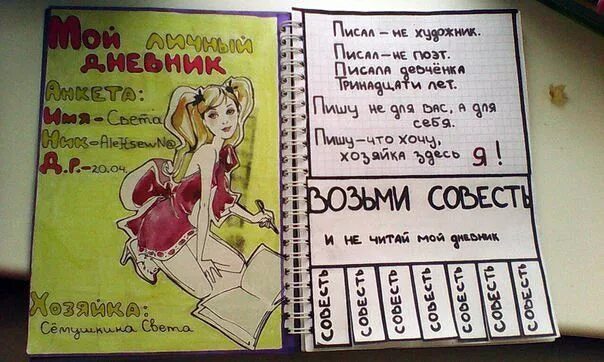 Мой личный
дневник
Анкета:
Имя-Света
Ник-
Д.Р.-20.04.
Хозяйка:
Сёмушкина Света
Писал – не художник.
Писал – не поэт.
Писала девчёнка
Тринадцати лет.
Пишу не для вас, а для
себя.
Пишу – что хочу,
хозяйка здесь Я!
Возьми совесть
и не читай мой дневник
совесть
совесть
совесть
совесть
совесть
совесть
совесть